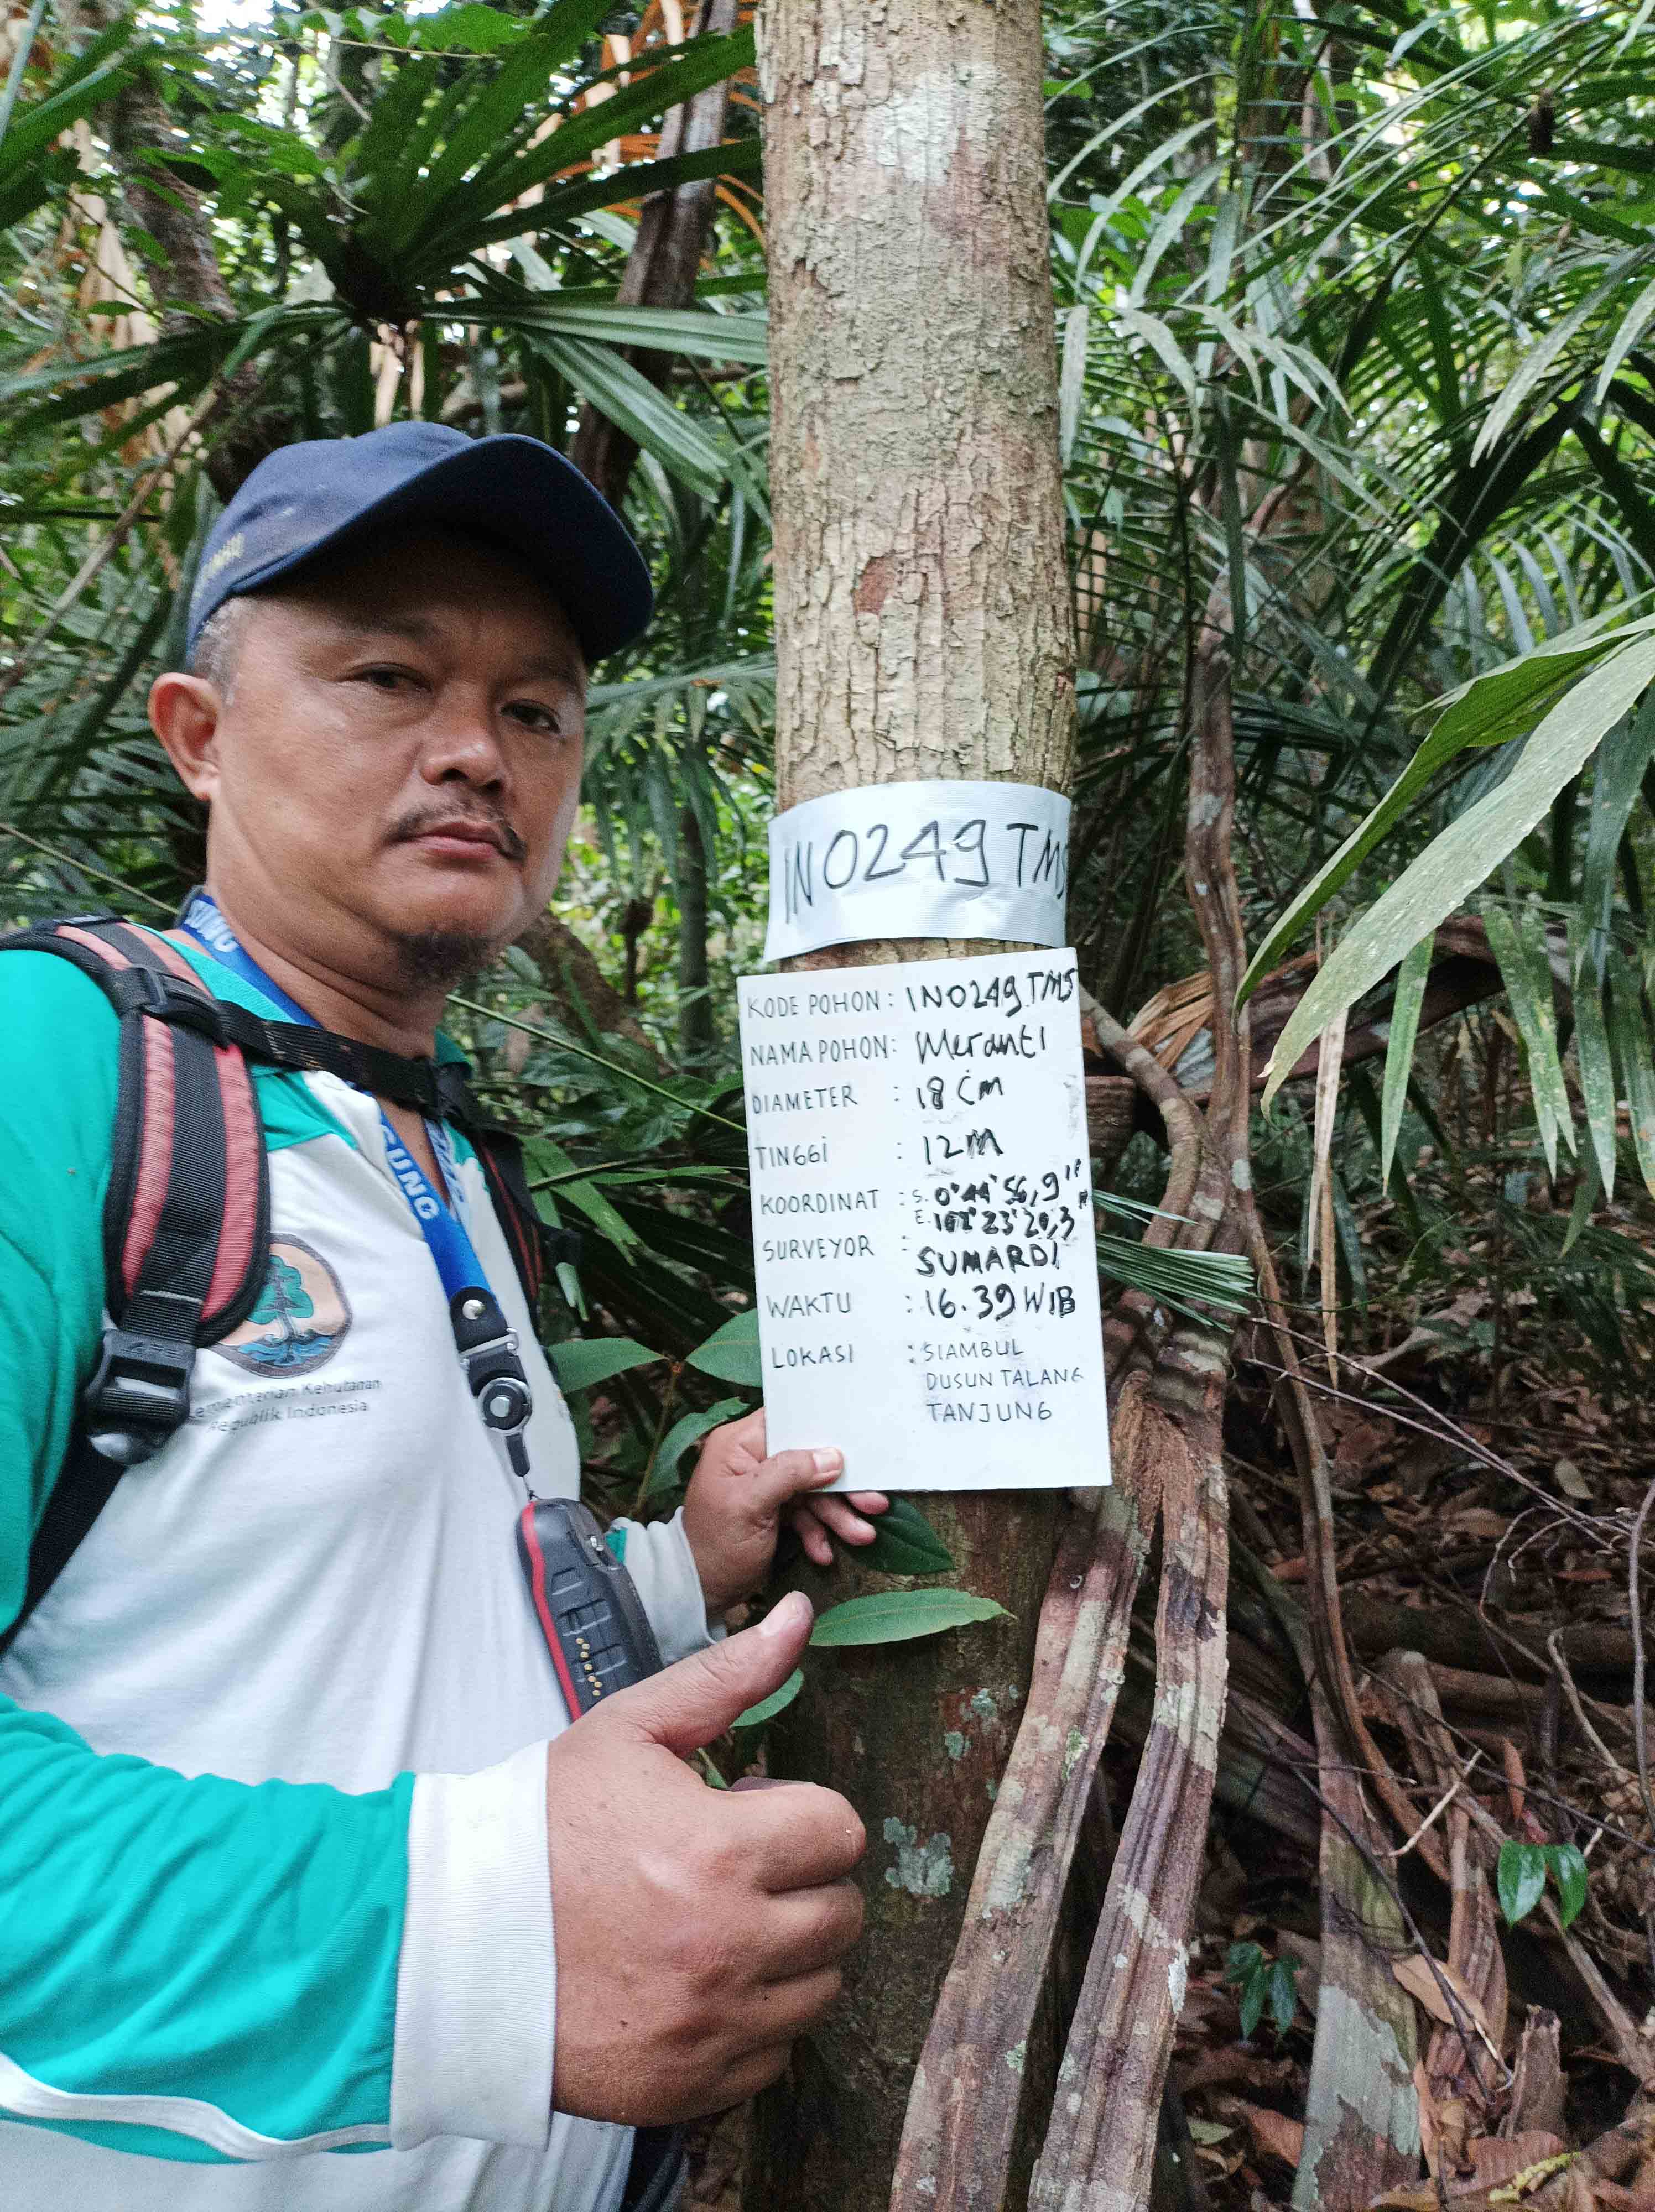 IN0249 TMS
KODE POHON : IN0249 TMS
NAMA POHON : Meranti
DIAMETER : 18 Cm
TINGGI : 12 M
KOORDINAT : S. 0°44'56,9"
E. 102°23'20,3"
SURVEYOR : SUMARDI
WAKTU : 16.39 WIB
LOKASI : SIAMBUL
DUSUN TALANG
TANJUNG
Kementerian Kehutanan
Republik Indonesia